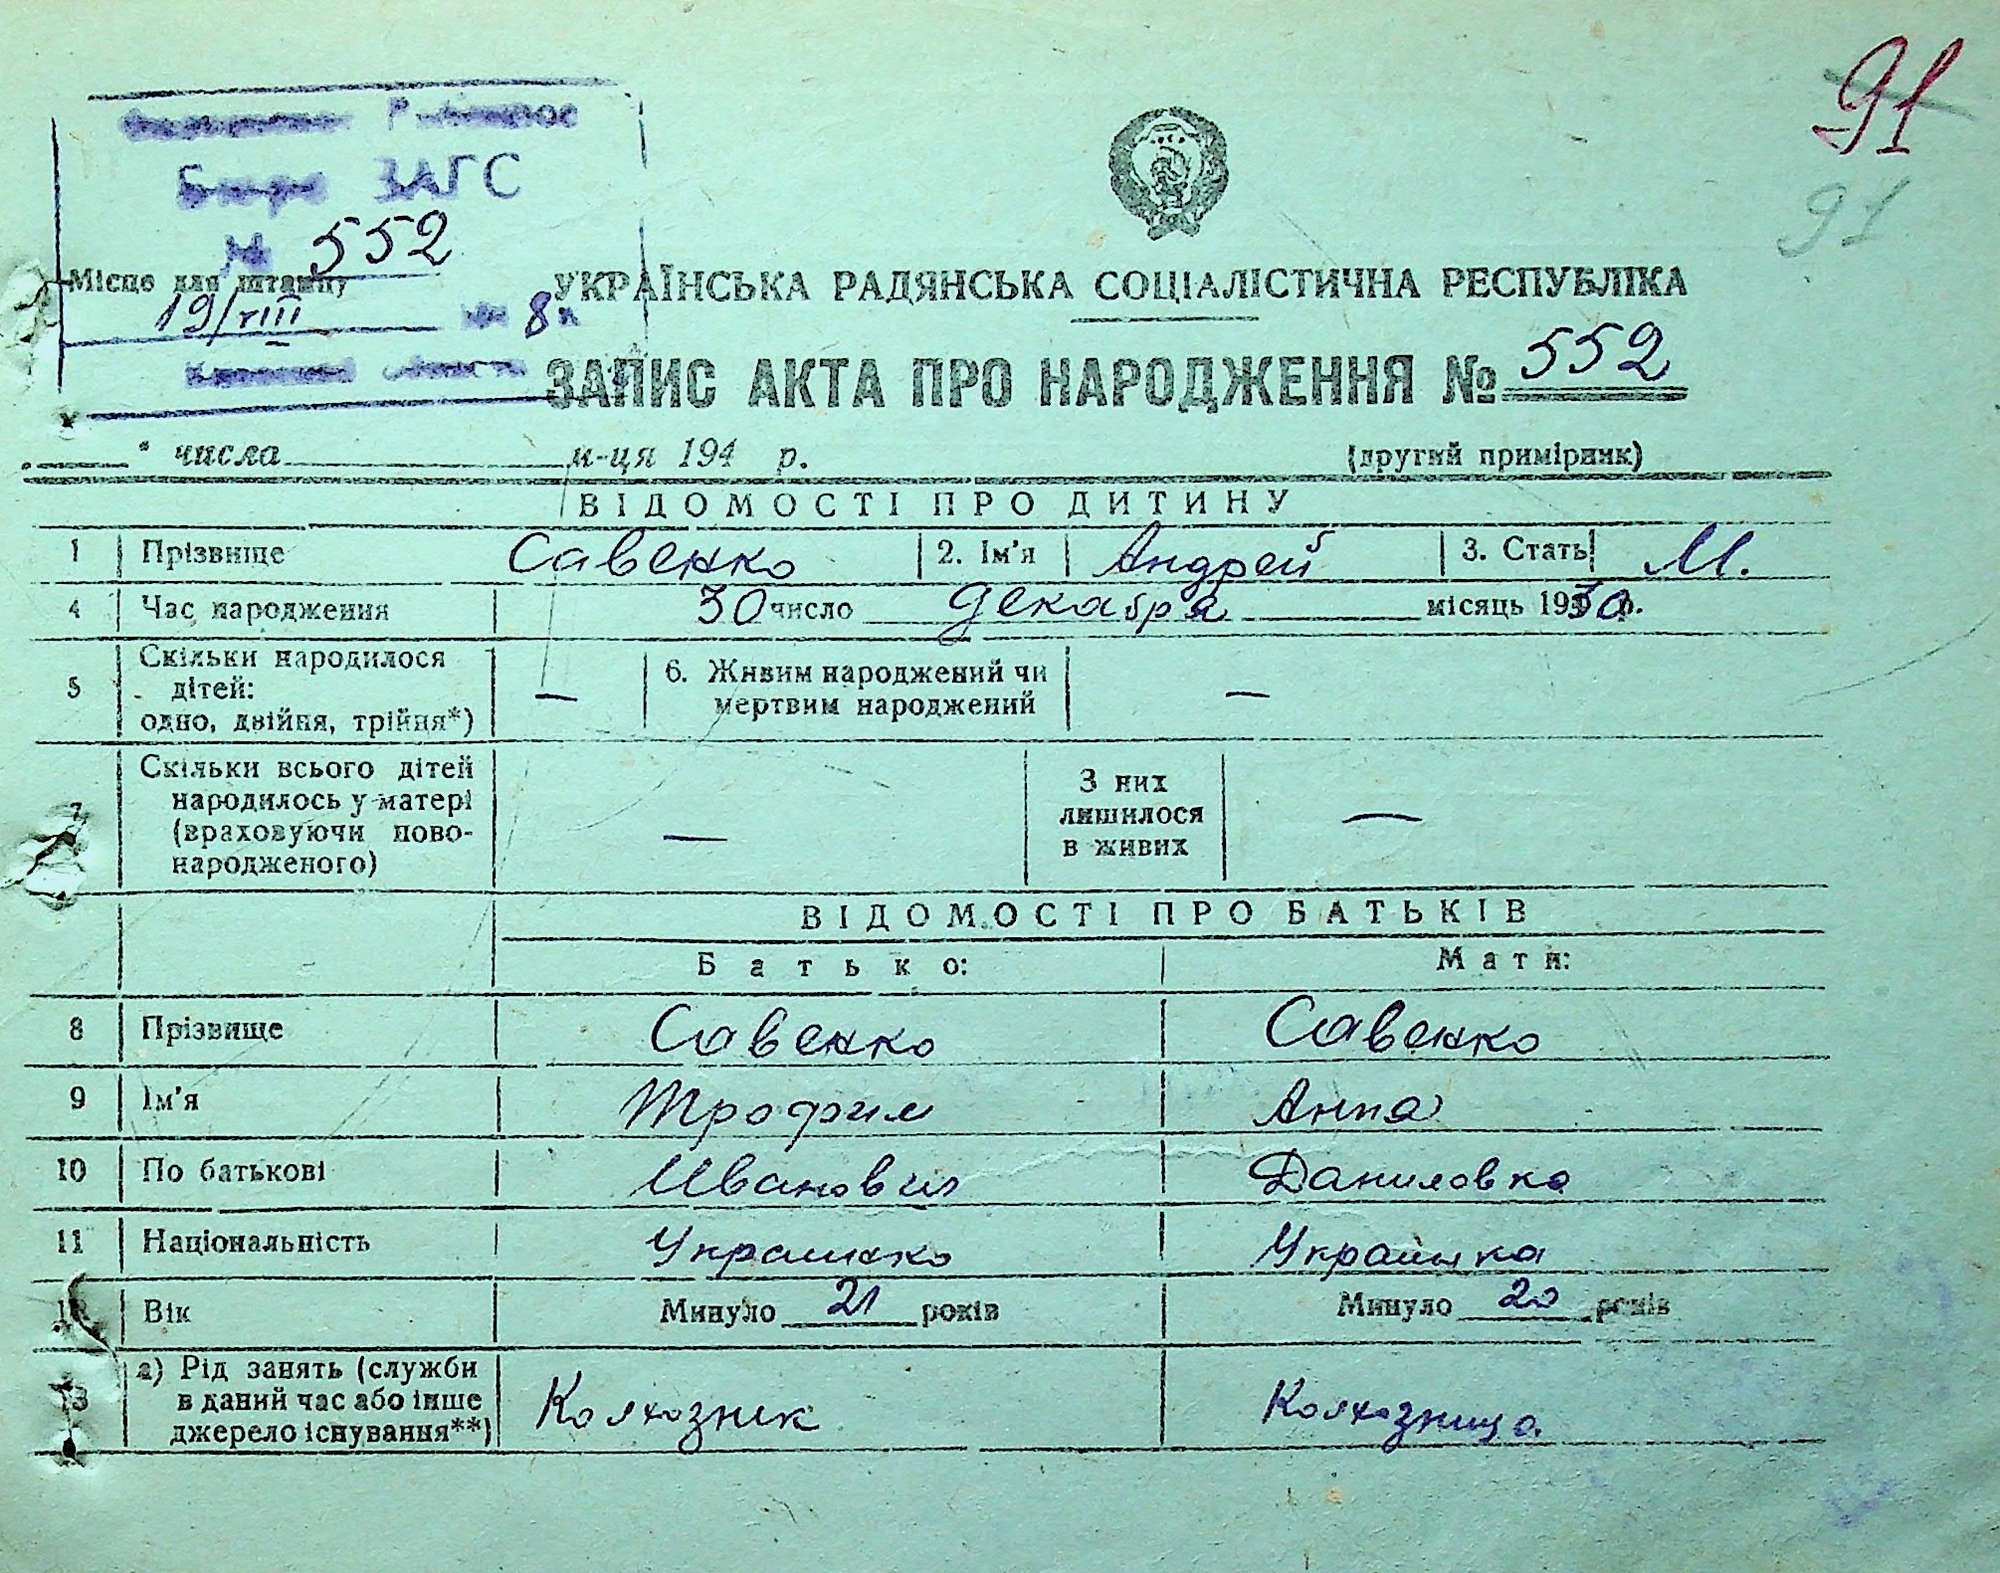 91
91
Бюро ЗАГС
№ 552
Місце для штампу
19/VIII 8
УКРАЇНСЬКА РАДЯНСЬКА СОЦІАЛІСТИЧНА РЕСПУБЛІКА
ЗАПИС АКТА ПРО НАРОДЖЕННЯ № 552
" числа м-ця 194 р. (другий примірник)
ВІДОМОСТІ ПРО ДИТИНУ
1 Прізвище Савенко 2. Ім'я Андрей 3. Стать М.
4 Час народження 30 число декабря місяць 1930 р.
5 Скільки народилося дітей: одно, двійня, трійня*) — 6. Живим народжений чи мертвим народжений —
7 Скільки всього дітей народилось у матері (враховуючи новонародженого) — З них лишилося в живих —
ВІДОМОСТІ ПРО БАТЬКІВ
Батько: Мати:
8 Прізвище Савенко Савенко
9 Ім'я Трофим Анна
10 По батькові Иванович Даниловна
11 Національність Украинко Украинка
12 Вік Минуло 21 років Минуло 20 років
13 а) Рід занять (служби в даний час або інше джерело існування**) Колхозник Колхозница